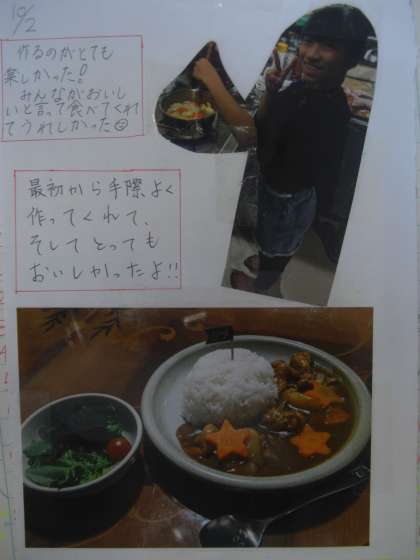 10/2
作るのがとても
楽しかった!
みんながおいし
いと言って食べてくれ
てうれしかった☺
最初から手際よく
作ってくれて、
そしてとっても
おいしかったよ!!